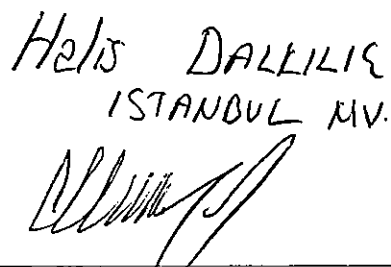 Halis DALKILIÇ
ISTANBUL MV.